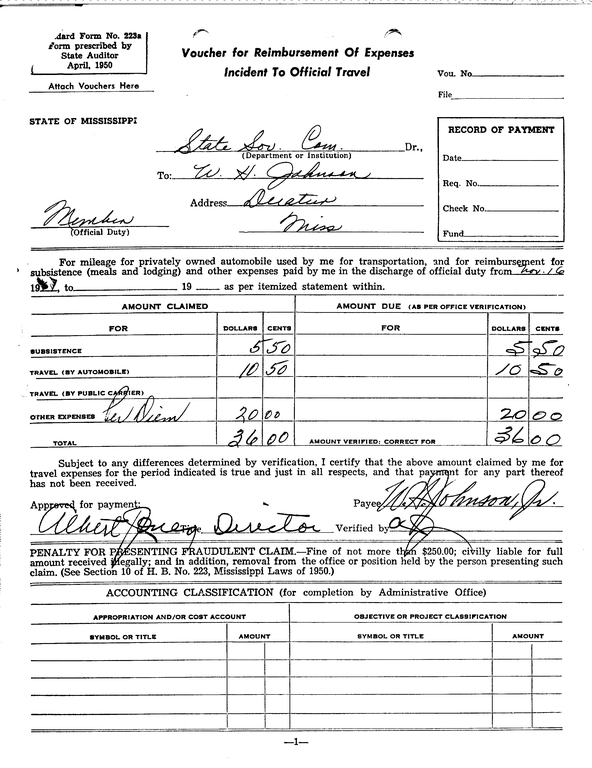 dard Form No. 223a
Form prescribed by
State Auditor
April, 1950
Attach Vouchers Here
Voucher for Reimbursement Of Expenses
Incident To Official Travel
Vou. No.
File
STATE OF MISSISSIPPI
State Sov. Com. Dr.,
(Department or Institution)
To: W. H. Johnson
Address Decatur
Miss
Member
(Official Duty)
RECORD OF PAYMENT
Date
Req. No.
Check No.
Fund
For mileage for privately owned automobile used by me for transportation, and for reimbursement for
subsistence (meals and lodging) and other expenses paid by me in the discharge of official duty from Nov. 16
19 , to 19 as per itemized statement within.
AMOUNT CLAIMED AMOUNT DUE (AS PER OFFICE VERIFICATION)
FOR DOLLARS CENTS FOR DOLLARS CENTS
SUBSISTENCE 5 50 5 50
TRAVEL (BY AUTOMOBILE) 10 50 10 50
TRAVEL (BY PUBLIC CARRIER)
OTHER EXPENSES Per Diem 20 00 20 00
TOTAL 36 00 AMOUNT VERIFIED: CORRECT FOR 36 00
Subject to any differences determined by verification, I certify that the above amount claimed by me for
travel expenses for the period indicated is true and just in all respects, and that payment for any part thereof
has not been received.
Approved for payment: Payee W. H. Johnson, Jr.
Albert Director Verified by
PENALTY FOR PRESENTING FRAUDULENT CLAIM.—Fine of not more than $250.00; civilly liable for full
amount received illegally; and in addition, removal from the office or position held by the person presenting such
claim. (See Section 10 of H. B. No. 223, Mississippi Laws of 1950.)
ACCOUNTING CLASSIFICATION (for completion by Administrative Office)
APPROPRIATION AND/OR COST ACCOUNT OBJECTIVE OR PROJECT CLASSIFICATION
SYMBOL OR TITLE AMOUNT SYMBOL OR TITLE AMOUNT
—1—